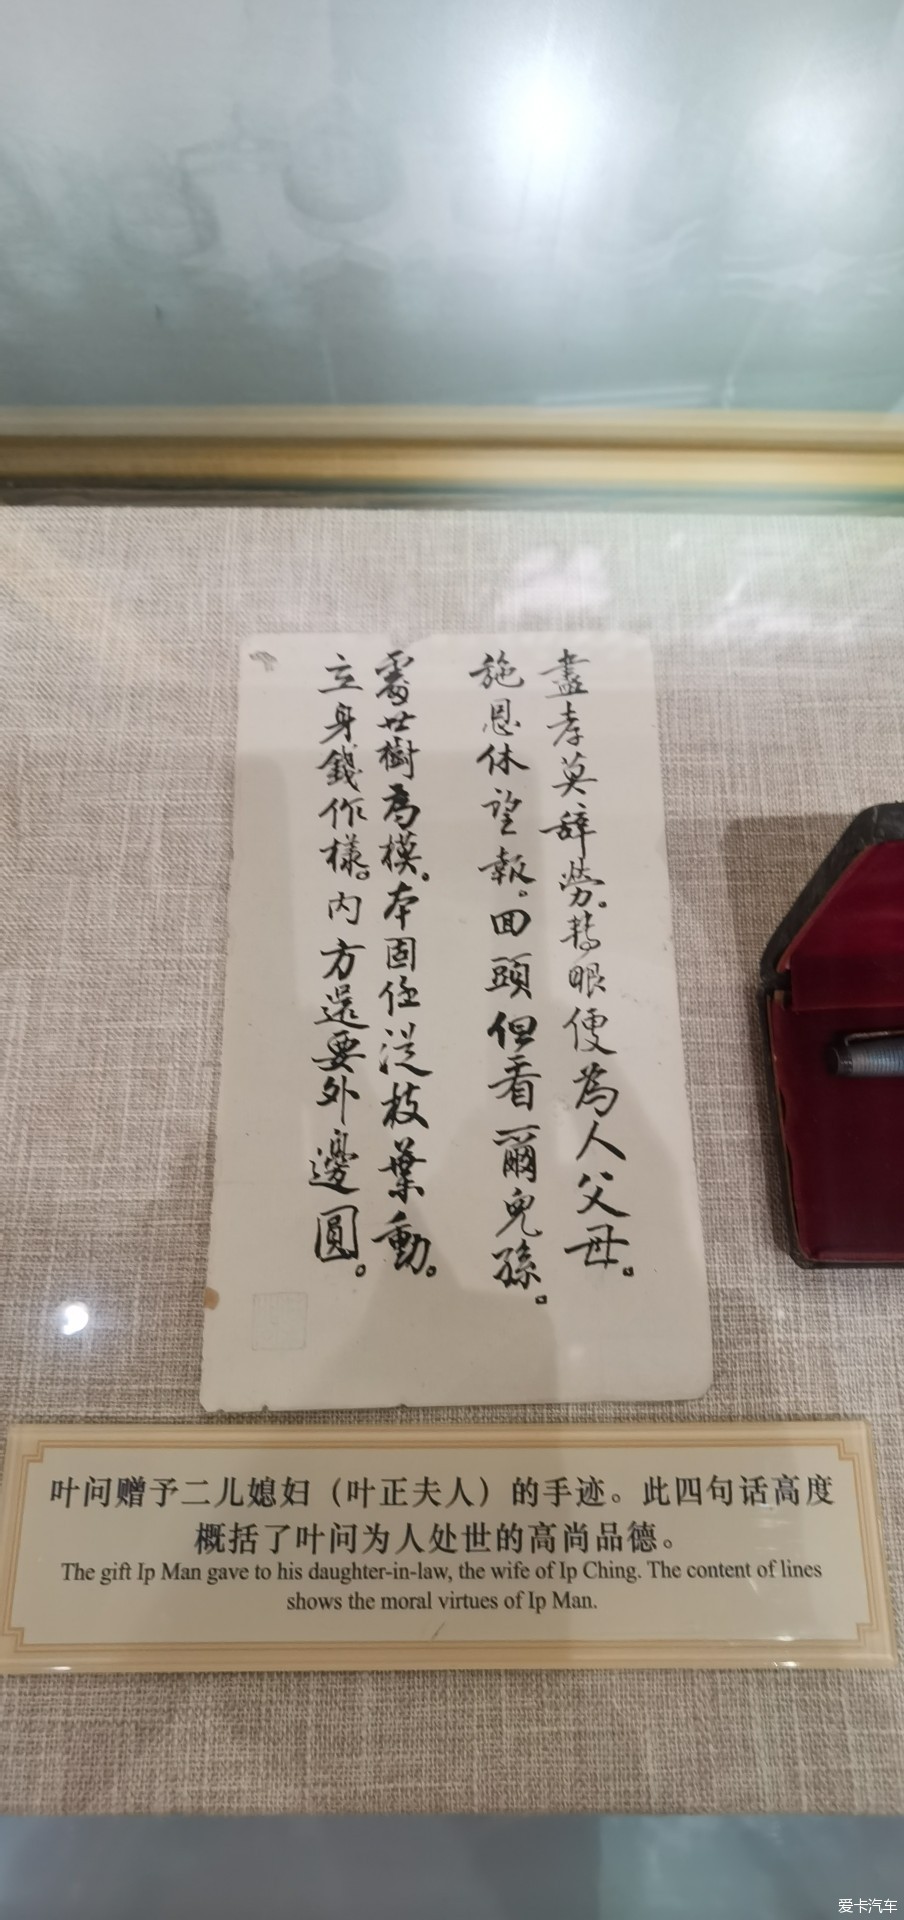 盡孝莫辭勞。轉眼便為人父母。
施恩休望報。回頭但看爾兒孫。
處世樹為模。本固任從枝葉動。
立身錢作樣。內方還要外邊圓。
叶问赠予二儿媳妇（叶正夫人）的手迹。此四句话高度
概括了叶问为人处世的高尚品德。
The gift Ip Man gave to his daughter-in-law, the wife of Ip Ching. The content of lines
shows the moral virtues of Ip Man.
爱卡汽车